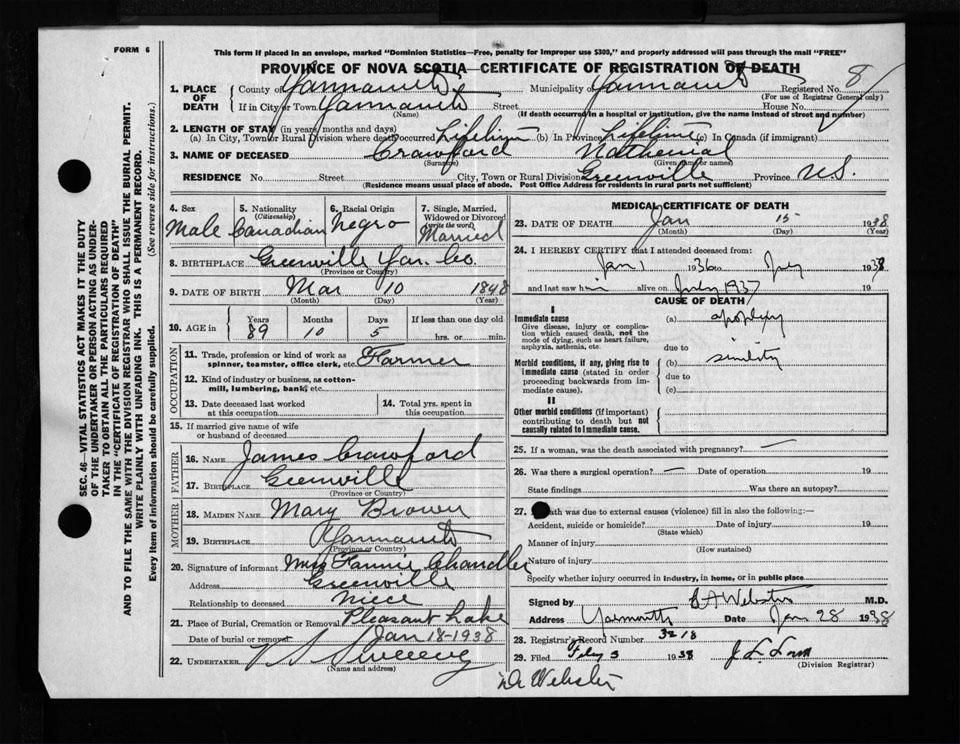 FORM 6
This form if placed in an envelope, marked "Dominion Statistics—Free, penalty for improper use $300," and properly addressed will pass through the mail "FREE"
PROVINCE OF NOVA SCOTIA—CERTIFICATE OF REGISTRATION OF DEATH
1. PLACE OF DEATH County of Yarmouth Municipality of Yarmouth Registered No. 8
(For use of Registrar General only)
If in City or Town Yarmouth Street House No.
(Name) (If death occurred in a hospital or institution, give the name instead of street and number)
2. LENGTH OF STAY (in years, months and days)
(a) In City, Town or Rural Division where death occurred Lifetime (b) In Province Lifetime (c) In Canada (if immigrant)
3. NAME OF DECEASED Crawford Nathenial
(Surname) (Given name or names)
RESIDENCE No. Street City, Town or Rural Division Greenville Province N.S.
(Residence means usual place of abode. Post Office Address for residents in rural parts not sufficient)
4. Sex 5. Nationality (Citizenship) 6. Racial Origin 7. Single, Married, Widowed or Divorced (write the word)
Male Canadian Negro Married
8. BIRTHPLACE Greenville Yar. Co.
(Province or Country)
9. DATE OF BIRTH Mar 10 1848
(Month) (Day) (Year)
10. AGE in Years Months Days If less than one day old
89 10 5 hrs. or min.
OCCUPATION
11. Trade, profession or kind of work as spinner, teamster, office clerk, etc. Farmer
12. Kind of industry or business, as cotton-mill, lumbering, bank, etc.
13. Date deceased last worked at this occupation 14. Total yrs. spent in this occupation
15. If married give name of wife or husband of deceased
FATHER
16. NAME James Crawford
17. BIRTHPLACE Greenville
(Province or Country)
MOTHER
18. MAIDEN NAME Mary Brown
19. BIRTHPLACE Yarmouth
(Province or Country)
20. Signature of informant Mrs Fannie Chandler
Address Greenville
Relationship to deceased niece
21. Place of Burial, Cremation or Removal Pleasant Lake
Date of burial or removal Jan 18-1938
22. UNDERTAKER V S Sweeny
(Name and address)
MEDICAL CERTIFICATE OF DEATH
23. DATE OF DEATH Jan 15 1938
(Month) (Day) (Year)
24. I HEREBY CERTIFY that I attended deceased from:
Jan 1 1936 to July 1938
and last saw him alive on July 1937 19
CAUSE OF DEATH
I
Immediate cause (a) apoplexy
Give disease, injury or complication which caused death, not the mode of dying, such as heart failure, asphyxia, asthenia, etc.
due to
Morbid conditions, if any, giving rise to immediate cause (stated in order proceeding backwards from immediate cause). (b) sinility
due to
(c)
II
Other morbid conditions (if important) contributing to death but not causally related to immediate cause.
25. If a woman, was the death associated with pregnancy? —
26. Was there a surgical operation? — Date of operation 19
State findings Was there an autopsy?
27. death was due to external causes (violence) fill in also the following:—
Accident, suicide or homicide? Date of injury 19
(State which)
Manner of injury
(How sustained)
Nature of injury
Specify whether injury occurred in industry, in home, or in public place
Signed by S A Webster M.D.
Address Yarmouth Date Jan 28 1938
28. Registrar's Record Number 3218
29. Filed 1938
(Division Registrar)
Dr Webster
SEC. 46—VITAL STATISTICS ACT MAKES IT THE DUTY
OF THE UNDERTAKER OR PERSON ACTING AS UNDER-
TAKER TO OBTAIN ALL THE PARTICULARS REQUIRED
IN THE "CERTIFICATE OF REGISTRATION OF DEATH"
AND TO FILE THE SAME WITH THE DIVISION REGISTRAR WHO SHALL ISSUE THE BURIAL PERMIT.
WRITE PLAINLY WITH UNFADING INK. THIS IS A PERMANENT RECORD.
Every item of information should be carefully supplied. (See reverse side for instructions.)